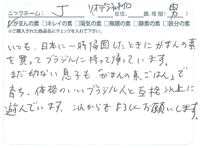 ニックネーム： J リオデジャネイロ 在住、 歳、性別： 男
がまんの素 □キレイの素 □陽気の素 □無限の素 □酵素の素 □鉄分の素
※ご購入された商品名にチェックを入れて下さい。
いつも、日本に一時帰国したときにがまんの素
を買ってブラジルに持って帰っています。
まだ幼ない息子も「がまんの素ごはん」で
育ち、体格のいいブラジル人と互格以上に
遊んでいます。これからもよろしくお願いします。